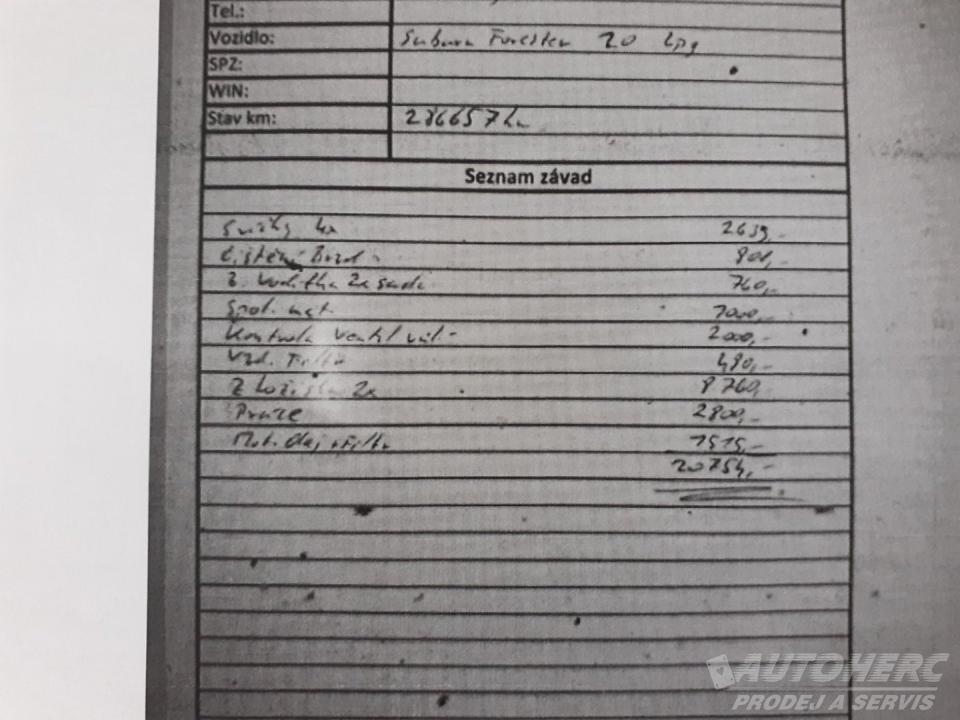 Tel.:
Vozidlo: Subaru Forester 20 Lpg
SPZ:
WIN:
Stav km: 286657 km
Seznam závad
Svíčky 4x 2639,-
čištění Brzd 800,-
2x sada 760,-
Spot. mat. 1000,-
Kontrola ventil vůlí 2000,-
Vzd. Filtr 480,-
Z Ložiska 2x 8760,-
Práce 2800,-
Mot. Olej + Filtr 1515,-
20754,-
AUTOHERC
PRODEJ A SERVIS